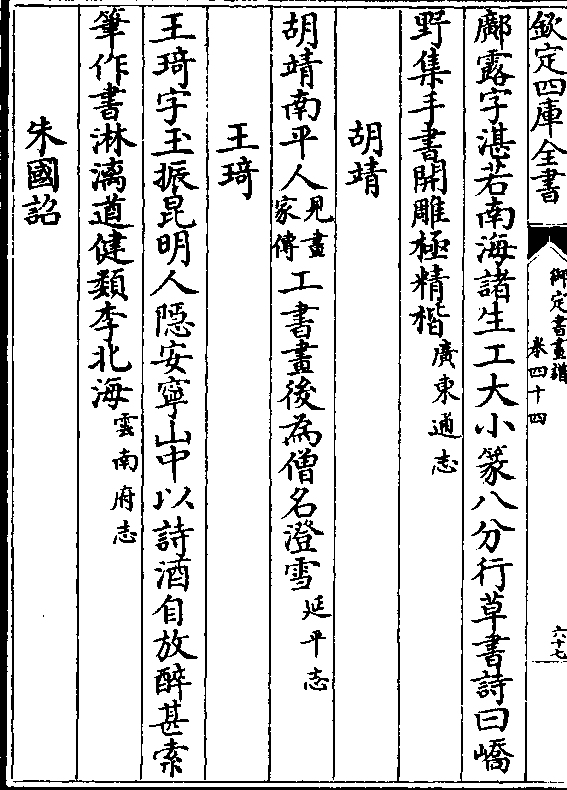 欽定四庫全書
御定書畫譜
卷四十四
六十七
鄺露字湛若南海諸生工大小篆八分行草書詩曰嶠
野集手書開雕極精楷廣東通志
胡靖
胡靖南平人見畫家傳工書畫後為僧名澄雪延平志
王琦
王琦字玉振昆明人隱安寧山中以詩酒自放醉甚索
筆作書淋漓遒健類李北海雲南府志
朱國詔